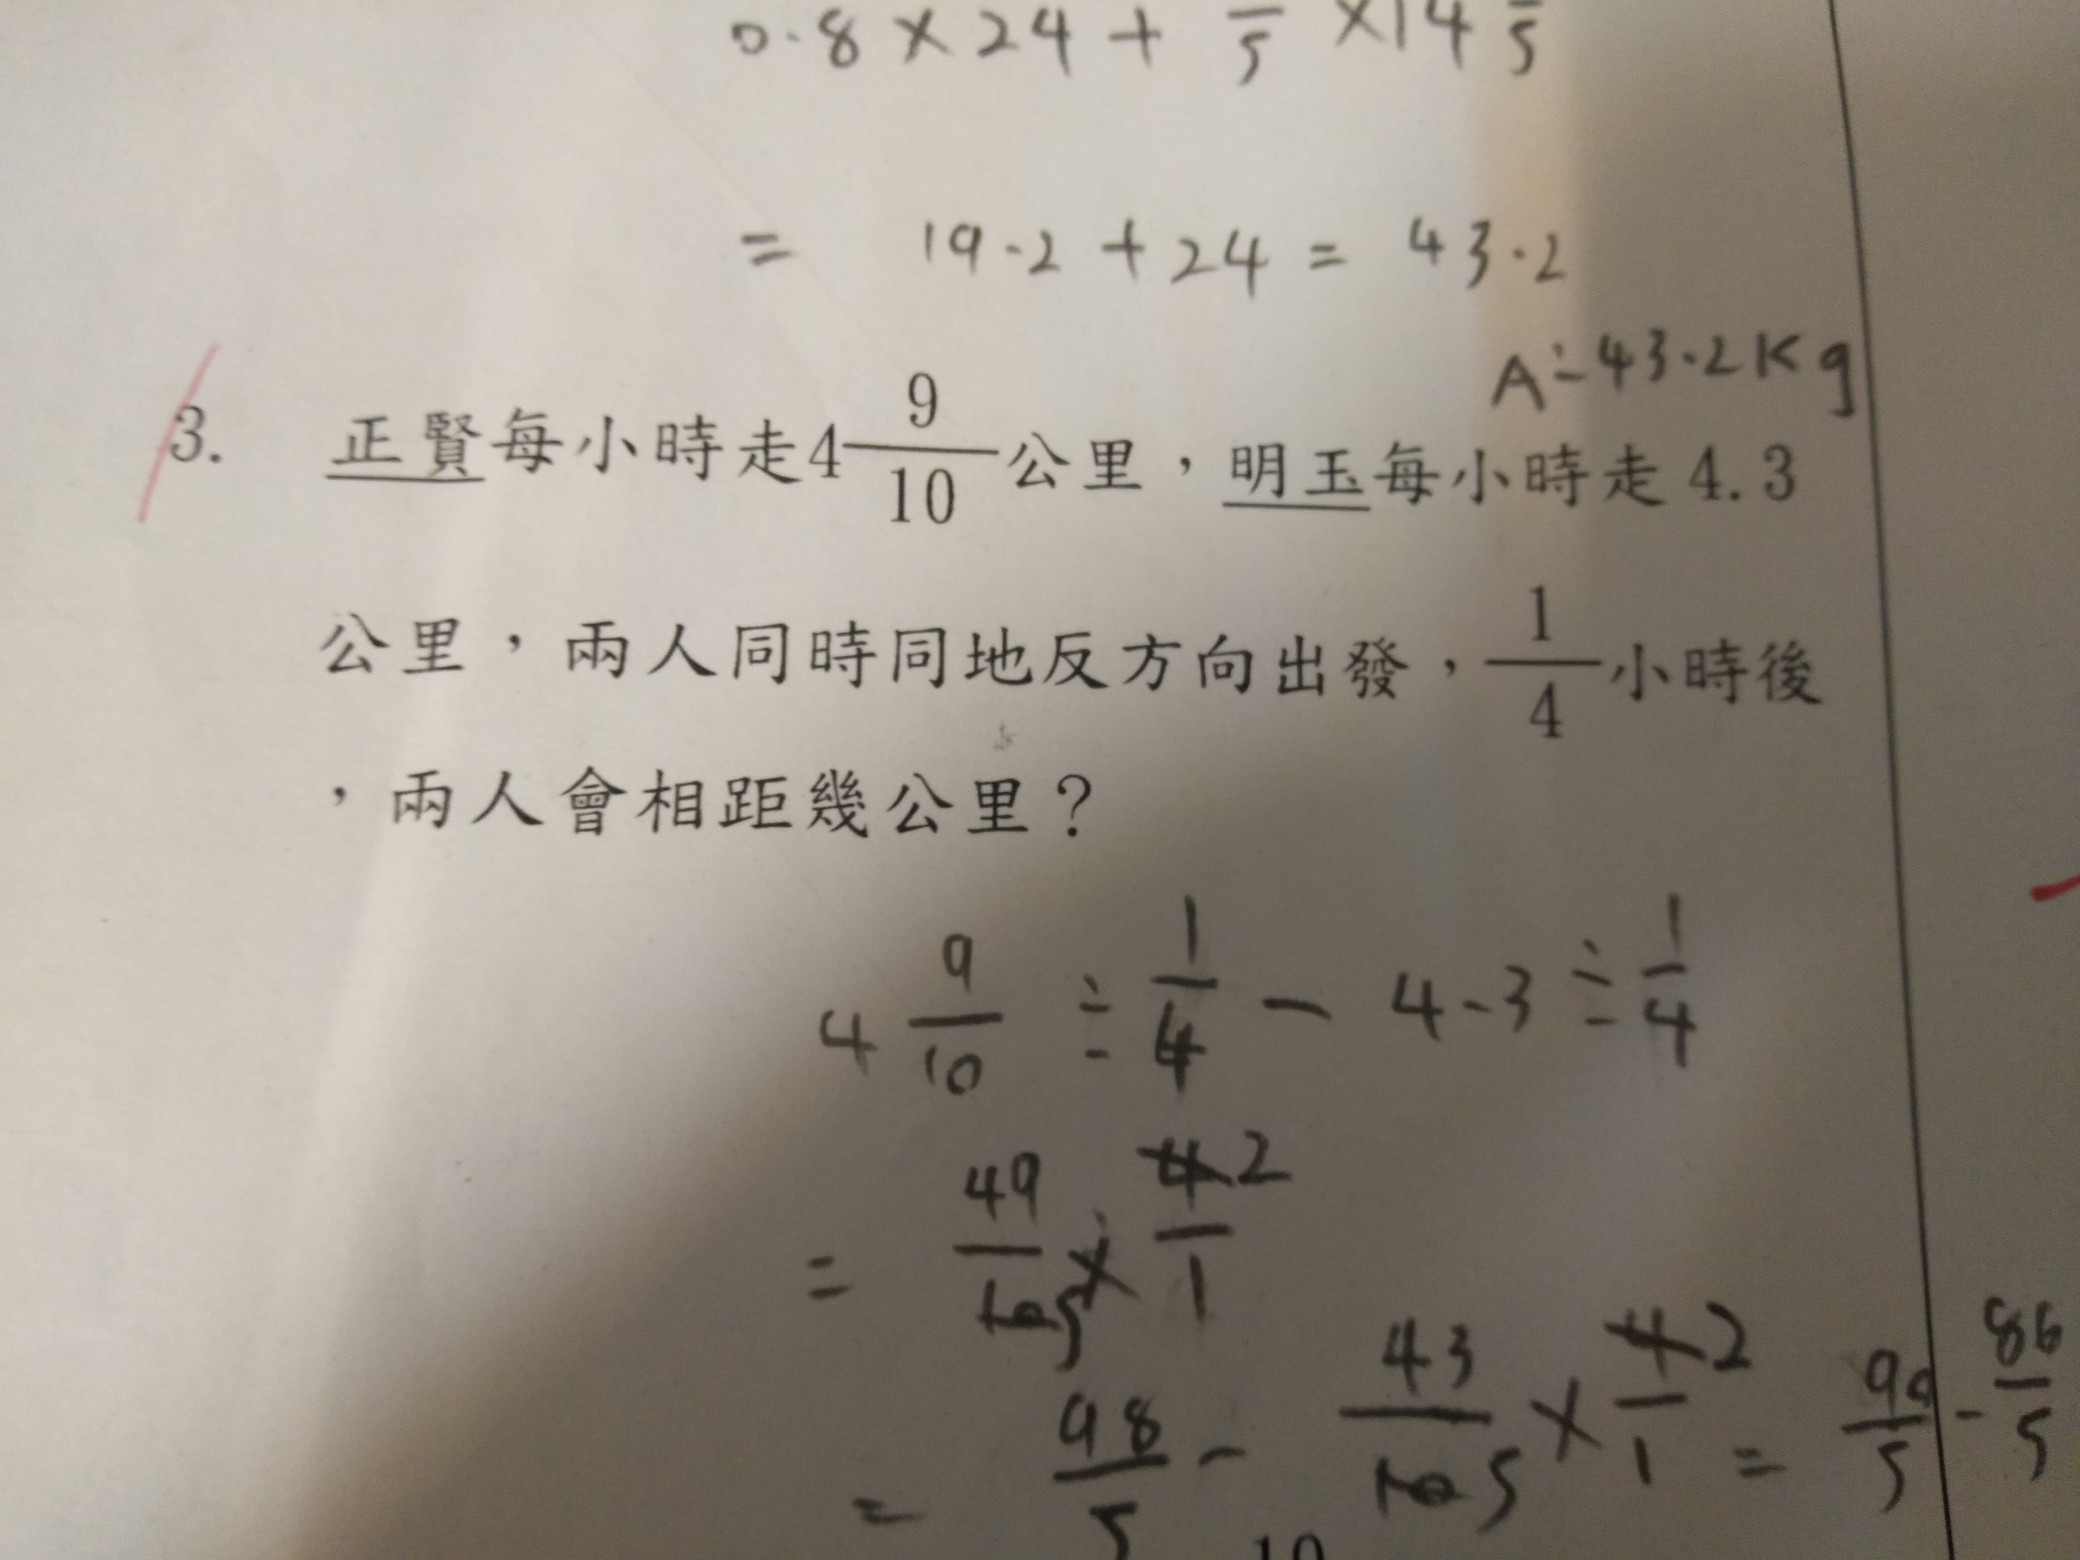 0.8 × 24 + /5 × 14 /5
= 19.2 + 24 = 43.2
A:43.2Kg
3. 正賢每小時走4 9/10 公里，明玉每小時走 4.3
公里，兩人同時同地反方向出發，1/4 小時後
，兩人會相距幾公里？
4 9/10 ÷ 1/4 - 4.3 ÷ 1/4
= 49/10 5 × 4 2/1
= 98/5 - 43/10 5 × 4 2/1 = /5 - 86/5
10